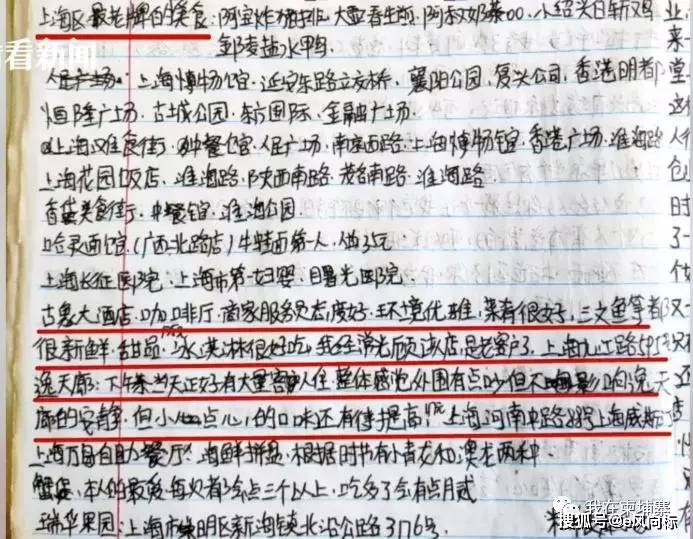 看看新闻
上海区最老牌的美食:阿宝炸猪排、大壶春生煎、阿叔奶茶00、小绍兴白斩鸡
盐水鸭
人民广场、上海博物馆、延安东路立交桥、襄阳公园、复兴公司、香港明都
恒隆广场、古城公园、东方国际、金融广场
上海美食街、中餐馆、人民广场、南京西路、上海博物馆、香港广场、淮海路
上海花园饭店、淮海路、陕西南路、茂名南路、淮海路
美食街、中餐馆、淮海公园
哈灵面馆(广西北路店)牛蛙面第一人
上海长征医院、上海市第一妇婴、曙光医院
古象大酒店、咖啡厅、商家服务员态度好、环境优雅、菜肴很好、三文鱼等都
很新鲜、甜品、冰淇淋很好吃、我经常光顾该店、是老客户了、上海九江路595号
逸天廊:下午茶当天正好有大量客人住、整体感觉外围有点吵但不影响逸天
廊的安静、但小点心的口味还有待提高、上海河南中路
上海万自助餐厅:海鲜拼盘、根据时节有小青龙和澳龙两种
蟹、本人的最爱每次都会点三个以上、吃多了会有点月咸
瑞华果园:上海市崇明区新海镇北沿公路3176号
我在柬埔寨
搜狐号@风向标